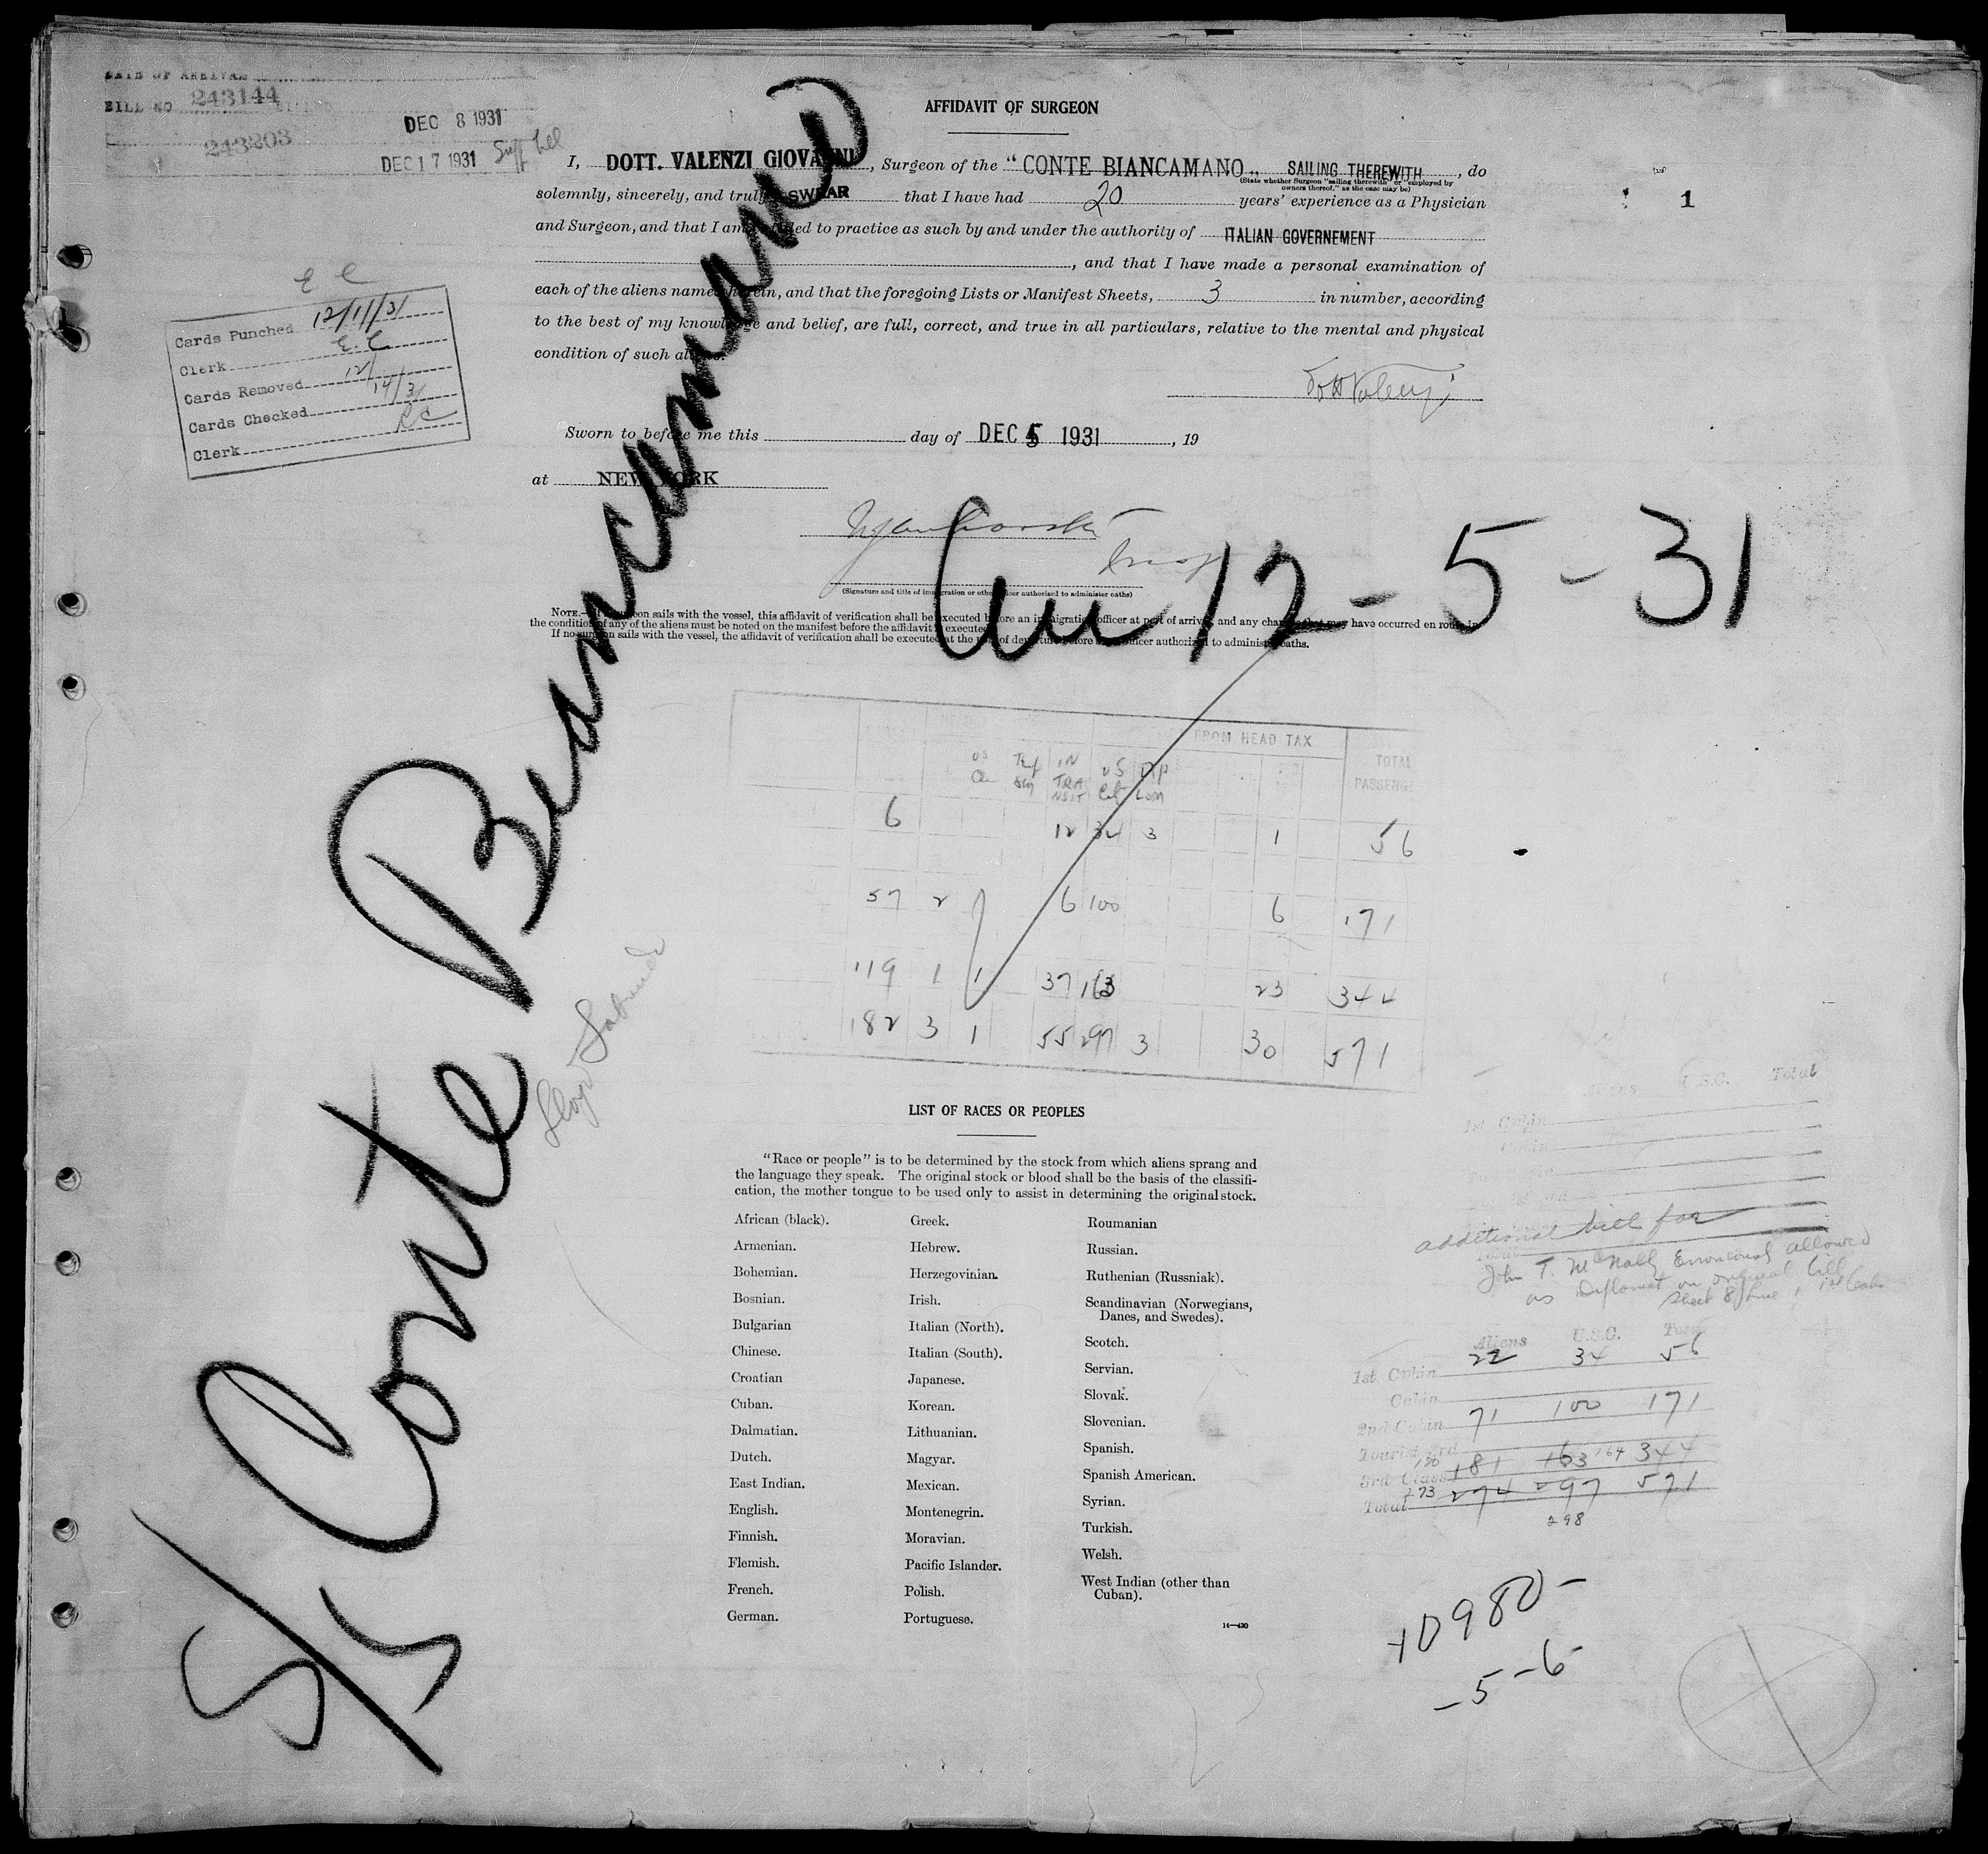 DATE OF ARRIVAL
BILL NO 243144
243203
DEC 8 1931
DEC 17 1931
AFFIDAVIT OF SURGEON
I, DOTT. VALENZI GIOVANNI, Surgeon of the "CONTE BIANCAMANO„ SAILING THEREWITH, do
(State whether Surgeon "sailing therewith" or "employed by
owners thereof," as the case may be)
solemnly, sincerely, and truly SWEAR that I have had 20 years' experience as a Physician
1
and Surgeon, and that I am entitled to practice as such by and under the authority of ITALIAN GOVERNEMENT
, and that I have made a personal examination of
each of the aliens named herein, and that the foregoing Lists or Manifest Sheets, 3 in number, according
to the best of my knowledge and belief, are full, correct, and true in all particulars, relative to the mental and physical
condition of such aliens.
Dott Valenzi
Sworn to before me this day of DEC 5 1931, 19
at NEW YORK
Insp
(Signature and title of immigration or other officer authorized to administer oaths)
E C
Cards Punched 12/11/31
Clerk E.C.
Cards Removed 12/
Cards Checked 14/31
Clerk EC
NOTE.—If surgeon sails with the vessel, this affidavit of verification shall be executed before an immigration officer at port of arrival, and any change that may have occurred en route in
the condition of any of the aliens must be noted on the manifest before the affidavit is executed.
If no surgeon sails with the vessel, the affidavit of verification shall be executed at the port of departure before an officer authorized to administer oaths.
S/S Conte Biancamano
Arr 12-5-31
Lloyd Sabaudo
FROM HEAD TAX
TOTAL
PASSENGE
US IN TRANSIT US Cit DIP LOM
6 12 34 3 1 56
57 2 6 100 6 171
119 1 1 37 163 23 344
182 3 1 55 297 3 30 571
LIST OF RACES OR PEOPLES
"Race or people" is to be determined by the stock from which aliens sprang and
the language they speak. The original stock or blood shall be the basis of the classifi-
cation, the mother tongue to be used only to assist in determining the original stock.
African (black).
Armenian.
Bohemian.
Bosnian.
Bulgarian
Chinese.
Croatian
Cuban.
Dalmatian.
Dutch.
East Indian.
English.
Finnish.
Flemish.
French.
German.
Greek.
Hebrew.
Herzegovinian.
Irish.
Italian (North).
Italian (South).
Japanese.
Korean.
Lithuanian.
Magyar.
Mexican.
Montenegrin.
Moravian.
Pacific Islander.
Polish.
Portuguese.
Roumanian
Russian.
Ruthenian (Russniak).
Scandinavian (Norwegians,
Danes, and Swedes).
Scotch.
Servian.
Slovak.
Slovenian.
Spanish.
Spanish American.
Syrian.
Turkish.
Welsh.
West Indian (other than
Cuban).
14—430
Aliens U.S.C. Total
1st Cabin
additional bill for
John T. McNally Erroneously allowed
as Diplomat on original bill
Sheet 8 line 1 1st Cabin
Aliens U.S.C. Total
1st Cabin 22 34 56
Cabin
2nd Cabin 71 100 171
Tourist 3rd
3rd Class 180 181 163 164 344
Total 273 274 297 571
298
10980-
-5-6-